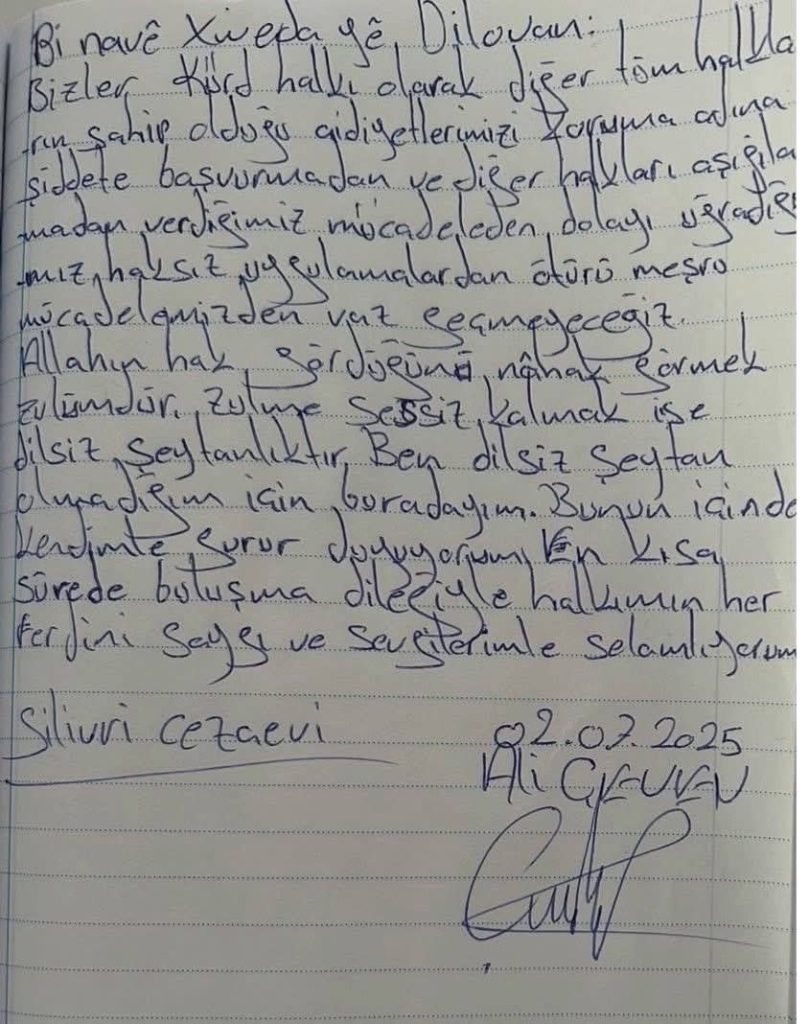 Bi navê Xwedayê Dilovan:
Bizler Kürd halkı olarak diğer tüm halkla
rın sahip olduğu aidiyetlerimizi koruma adına
şiddete başvurmadan ve diğer halkları aşığıla
madan verdiğimiz mücadeleden dolayı uğradığı
mız haksız uygulamalardan ötürü meşru
mücadelemizden vaz geçmeyeceğiz.
Allahın hak gördüğünü nâhak görmek
zulümdür. Zulme sessiz kalmak ise
dilsiz şeytanlıktır. Ben dilsiz şeytan
olmadığım için buradayım. Bunun içinde
kendimle gurur duyuyorum. En kısa
sürede buluşma dileğiyle halkımın her
ferdini saygı ve sevgilerimle selamlıyorum
Silivri Cezaevi
02.07.2025
Ali